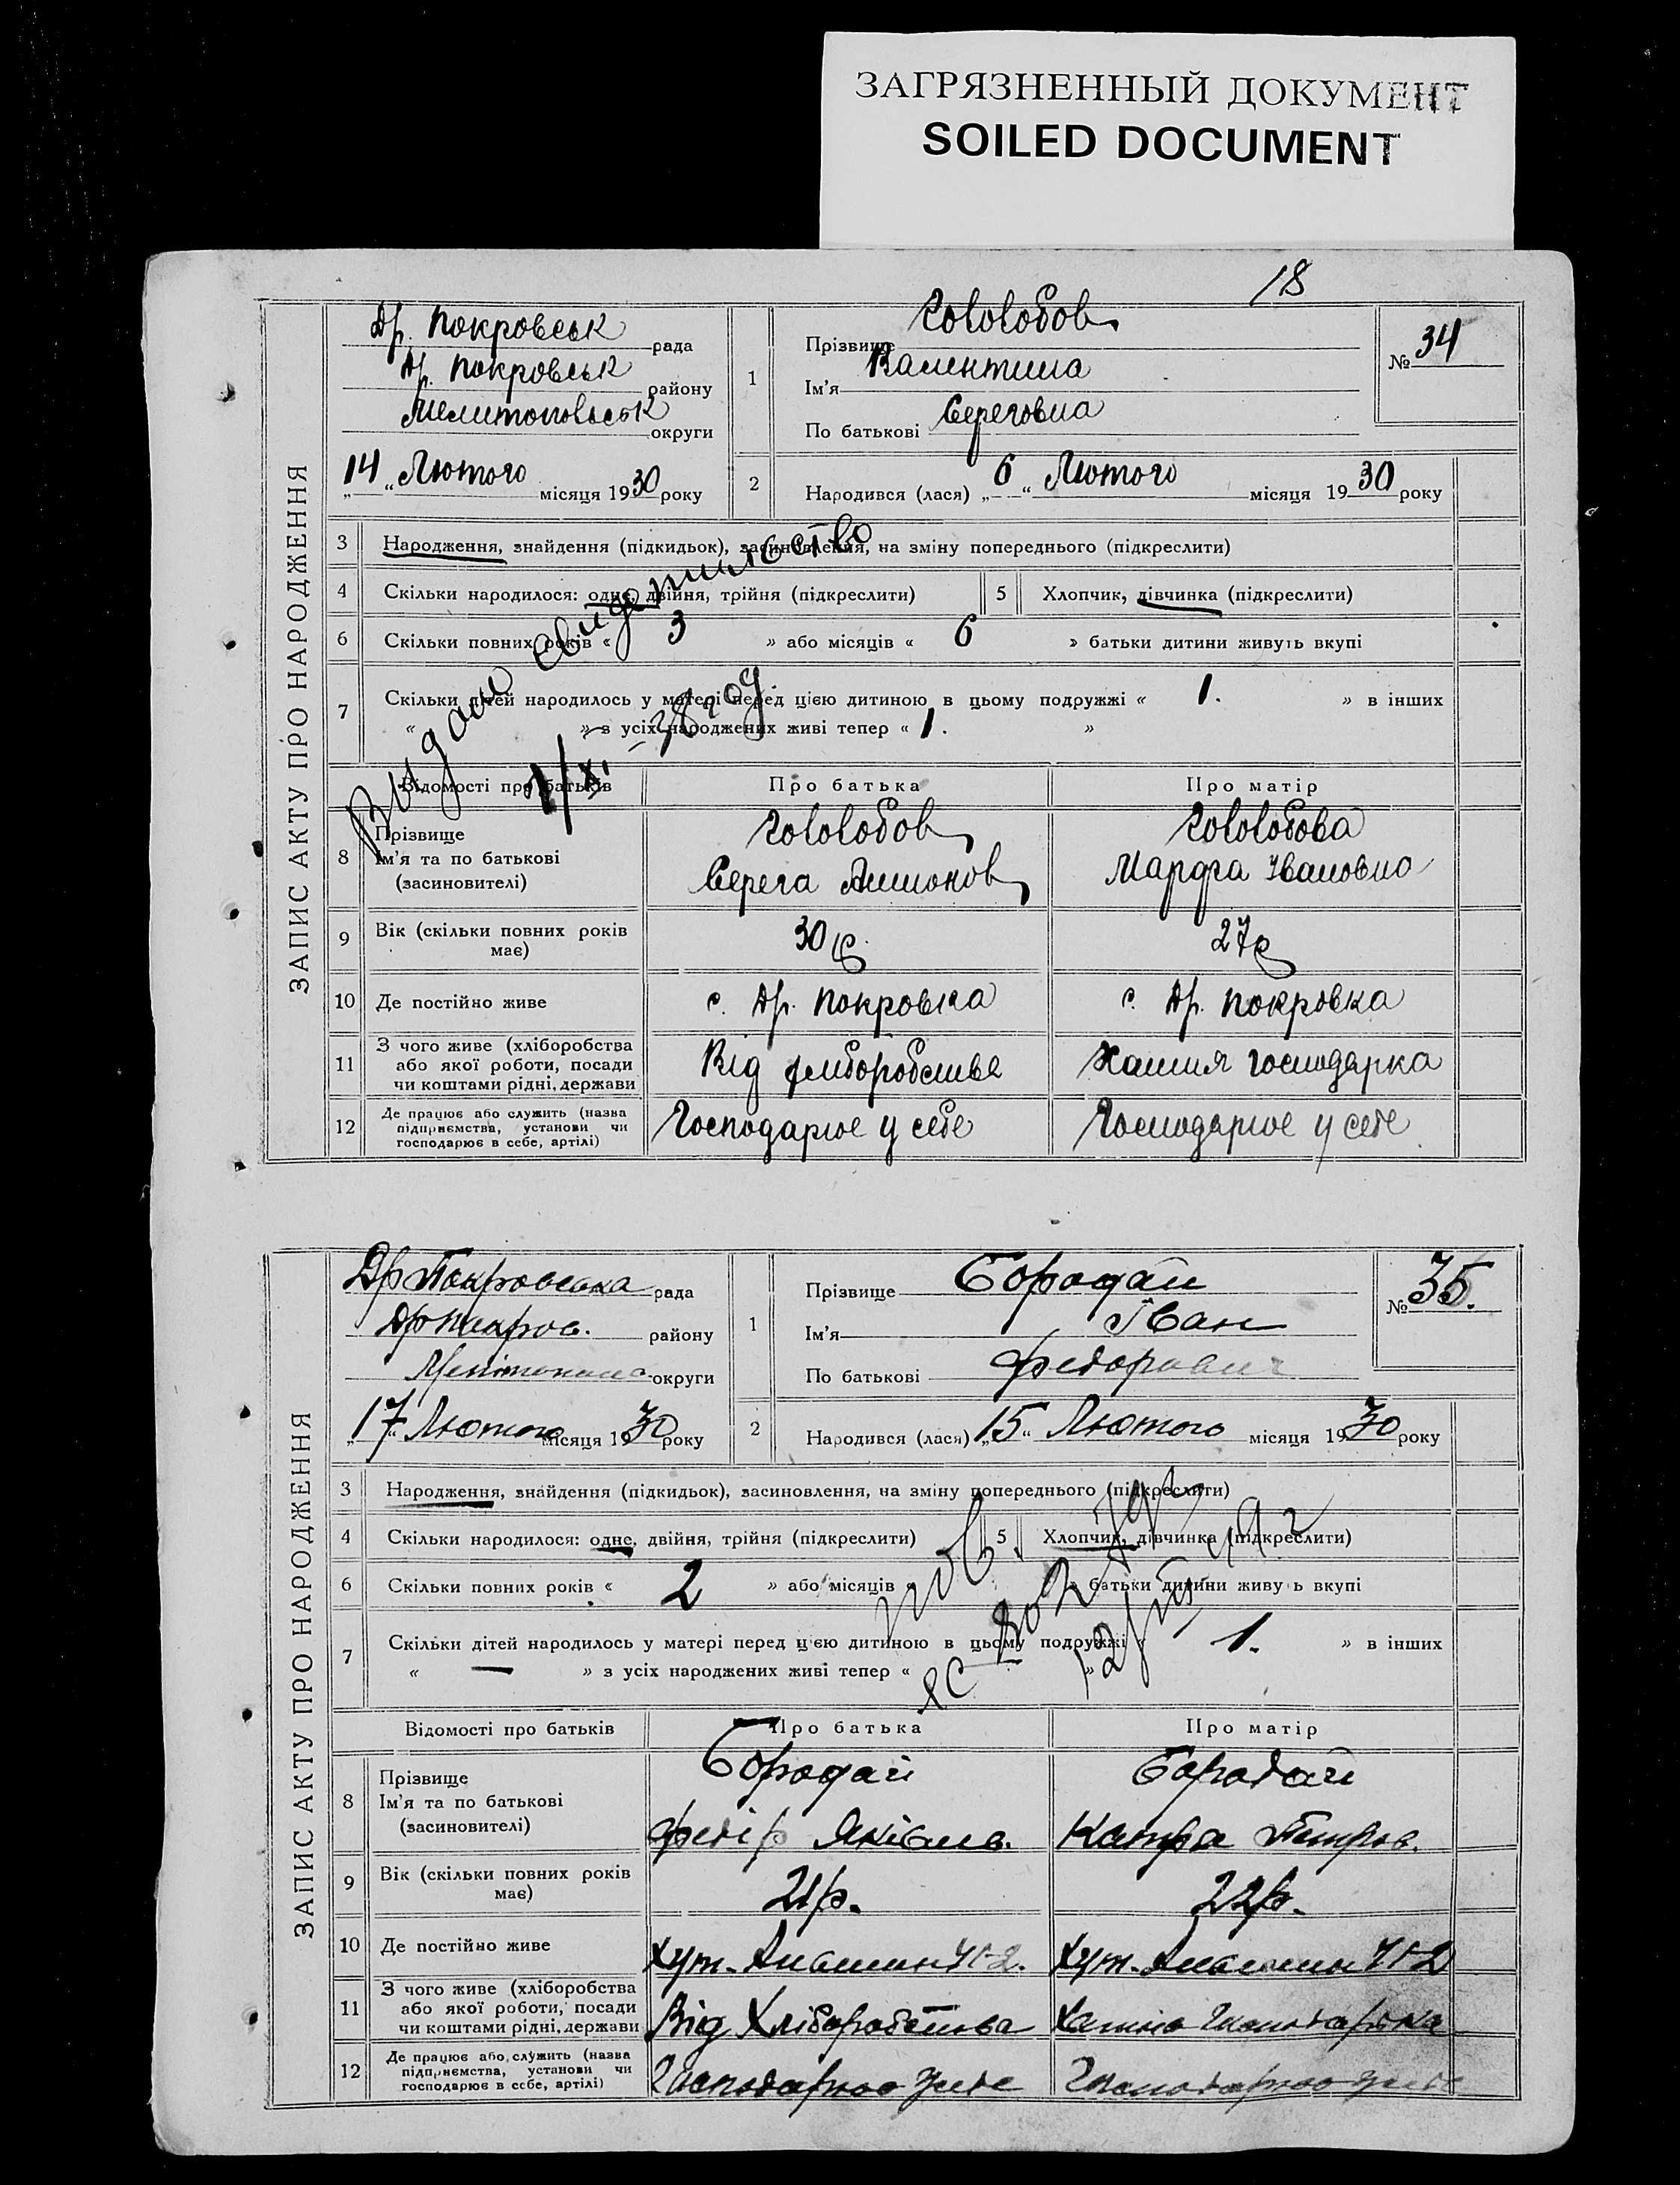 ЗАГРЯЗНЕННЫЙ ДОКУМЕНТ
SOILED DOCUMENT
18
ЗАПИС АКТУ ПРО НАРОДЖЕННЯ
Др. Покровськ рада
Др. Покровськ району
Мелитопольськ округи
„14“ Лютого місяця 1930 року
1
Прізвище Гололобов
Ім'я Валентина
По батькові Сереговна
№ 34
2
Народився (лася) „6“ Лютого місяця 1930 року
3 Народження, знайдення (підкидьок), засиновлення, на зміну попереднього (підкреслити)
4 Скільки народилося: одне, двійня, трійня (підкреслити) 5 Хлопчик, дівчинка (підкреслити)
6 Скільки повних років « 3 » або місяців « 6 » батьки дитини живуть вкупі
7 Скільки дітей народилось у матері перед цією дитиною в цьому подружжі « 1. » в інших
« » з усіх народжених живі тепер « 1. »
Видано свидетельство
1/XI – 38 год.
Відомості про батьків Про батька Про матір
8 Прізвище Гололобов Гололобова
Ім'я та по батькові
(засиновителі) Серега Антонов Марфа Івановно
9 Вік (скільки повних років має) 30 р. 27 р
10 Де постійно живе с. Др. Покровка с. Др. Покровка
11 З чого живе (хліборобства або якої роботи, посади чи коштами рідні, держави Від хліборобства Хатня господарка
12 Де працює або служить (назва підприємства, установи чи господарює в себе, артілі) Господарює у себе Господарює у себе
ЗАПИС АКТУ ПРО НАРОДЖЕННЯ
Др Покровська рада
Др Покров. району
округи
„17“ Лютого місяця 1930 року
1
Прізвище Бородай
Ім'я Іван
По батькові Федорович
№ 35.
2
Народився (лася) „15“ Лютого місяця 1930 року
3 Народження, знайдення (підкидьок), засиновлення, на зміну попереднього (підкреслити)
4 Скільки народилося: одне, двійня, трійня (підкреслити) 5 Хлопчик, дівчинка (підкреслити)
6 Скільки повних років « 2 » або місяців « » батьки дитини живуть вкупі
7 Скільки дітей народилось у матері перед цією дитиною в цьому подружжі « 1. » в інших
« — » з усіх народжених живі тепер « »
Відомості про батьків Про батька Про матір
8 Прізвище Бородай Бородай
Ім'я та по батькові
(засиновителі) Федір Яківлів. Катря Петров.
9 Вік (скільки повних років має) 21 р. 22 р.
10 Де постійно живе Хут. Хут.
11 З чого живе (хліборобства або якої роботи, посади чи коштами рідні, держави Від Хліборобства Хатня Господарка
12 Де працює або служить (назва підприємства, установи чи господарює в себе, артілі) Господарює у себе Господарює у себе